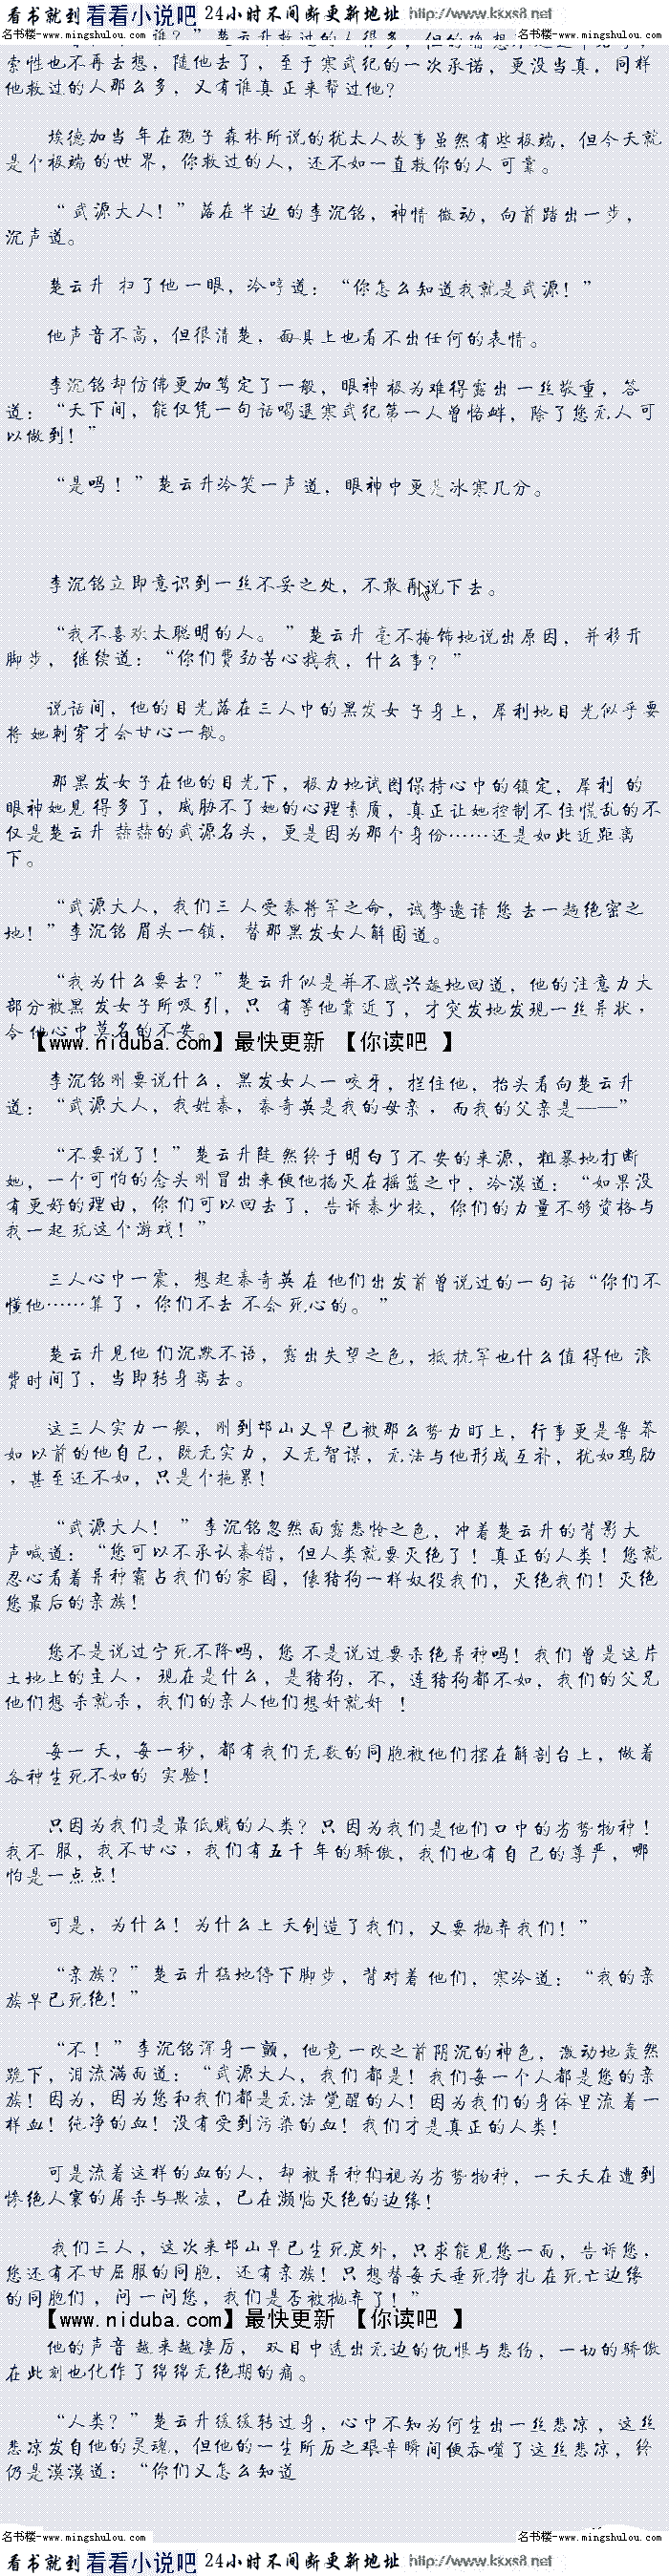 看书就到 看看小说吧 24小时不间断更新地址 http://www.kxxs8.net
名书楼-www.mingshulou.com 名书楼-www.mingshulou.com
索性也不再去想，随他去了，至于寒武纪的一次承诺，更没当真，同样
他救过的人那么多，又有谁真正来帮过他？
埃德加当年在孢子森林所说的犹太人故事虽然有些极端，但今天就
是个极端的世界，你救过的人，还不如一直救你的人可靠。
“武源大人！”落在半边的李沉铭，神情微动，向前踏出一步，
沉声道。
楚云升扫了他一眼，冷哼道：“你怎么知道我就是武源！”
他声音不高，但很清楚，面具上也看不出任何的表情。
李沉铭却仿佛更加笃定了一般，眼神极为难得露出一丝敬重，答
道：“天下间，能仅凭一句话喝退寒武纪第一人曾恪衅，除了您无人可
以做到！”
“是吗！”楚云升冷笑一声道，眼神中更是冰寒几分。
李沉铭立即意识到一丝不妥之处，不敢再说下去。
“我不喜欢太聪明的人。”楚云升毫不掩饰地说出原因，并移开
脚步，继续道：“你们费劲苦心找我，什么事？”
说话间，他的目光落在三人中的黑发女子身上，犀利地目光似乎要
将她刺穿才会甘心一般。
那黑发女子在他的目光下，极力地试图保持心中的镇定，犀利的
眼神她见得多了，威胁不了她的心理素质，真正让她控制不住慌乱的不
仅是楚云升赫赫的武源名头，更是因为那个身份……还是如此近距离
下。
“武源大人，我们三人受秦将军之命，诚挚邀请您去一趟绝密之
地！”李沉铭眉头一锁，替那黑发女人解围道。
“我为什么要去？”楚云升似是并不感兴趣地回道，他的注意力大
部分被黑发女子所吸引，只有等他靠近了，才突发地发现一丝异状，
令他心中莫名的不安。
【www.niduba.com】最快更新 【你读吧 】
李沉铭刚要说什么，黑发女人一咬牙，拦住他，抬头看向楚云升
道：“武源大人，我姓秦，秦奇英是我的母亲，而我的父亲是——”
“不要说了！”楚云升陡然终于明白了不安的来源，粗暴地打断
她，一个可怕的念头刚冒出来便他掐灭在摇篮之中，冷漠道：“如果没
有更好的理由，你们可以回去了，告诉秦少校，你们的力量不够资格与
我一起玩这个游戏！”
三人心中一震，想起秦奇英在他们出发前曾说过的一句话“你们不
懂他……算了，你们不去不会死心的。”
楚云升见他们沉默不语，露出失望之色，抵抗军也什么值得他浪
费时间了，当即转身离去。
这三人实力一般，刚到邙山又早已被那么势力盯上，行事更是鲁莽
如以前的他自己，既无实力，又无智谋，无法与他形成互补，犹如鸡肋
，甚至还不如，只是个拖累！
“武源大人！”李沉铭忽然面露悲怆之色，冲着楚云升的背影大
声喊道：“您可以不承认秦错，但人类就要灭绝了！真正的人类！您就
忍心看着异种霸占我们的家园，像猪狗一样奴役我们，灭绝我们！灭绝
您最后的亲族！
您不是说过宁死不降吗，您不是说过要杀绝异种吗！我们曾是这片
土地上的主人，现在是什么，是猪狗，不，连猪狗都不如，我们的父兄
他们想杀就杀，我们的亲人他们想奸就奸！
每一天，每一秒，都有我们无数的同胞被他们摆在解剖台上，做着
各种生死不如的实验！
只因为我们是最低贱的人类？只因为我们是他们口中的劣势物种！
我不服，我不甘心，我们有五千年的骄傲，我们也有自己的尊严，哪
怕是一点点！
可是，为什么！为什么上天创造了我们，又要抛弃我们！”
“亲族？”楚云升猛地停下脚步，背对着他们，寒冷道：“我的亲
族早已死绝！”
“不！”李沉铭浑身一颤，他竟一改之前阴沉的神色，激动地轰然
跪下，泪流满面道：“武源大人，我们都是！我们每一个人都是您的亲
族！因为，因为您和我们都是无法觉醒的人！因为我们的身体里流着一
样血！纯净的血！没有受到污染的血！我们才是真正的人类！
可是流着这样的血的人，却被异种们视为劣势物种，一天天在遭到
惨绝人寰的屠杀与欺凌，已在濒临灭绝的边缘！
我们三人，这次来邙山早已生死度外，只求能见您一面，告诉您，
您还有不甘屈服的同胞，还有亲族！只想替每天垂死挣扎在死亡边缘
的同胞们，问一问您，我们是否被抛弃了！”
【www.niduba.com】最快更新 【你读吧 】
他的声音越来越凄厉，双目中透出无边的仇恨与悲伤，一切的骄傲
在此刻也化作了绵绵无绝期的痛。
“人类？”楚云升缓缓转过身，心中不知为何生出一丝悲凉，这丝
悲凉发自他的灵魂，但他的一生所历之艰辛瞬间便吞噬了这丝悲凉，终
仍是漠漠道：“你们又怎么知道
名书楼-www.mingshulou.com 名书楼-www.mingshulou.com
看书就到 看看小说吧 24小时不间断更新地址 http://www.kxxs8.net